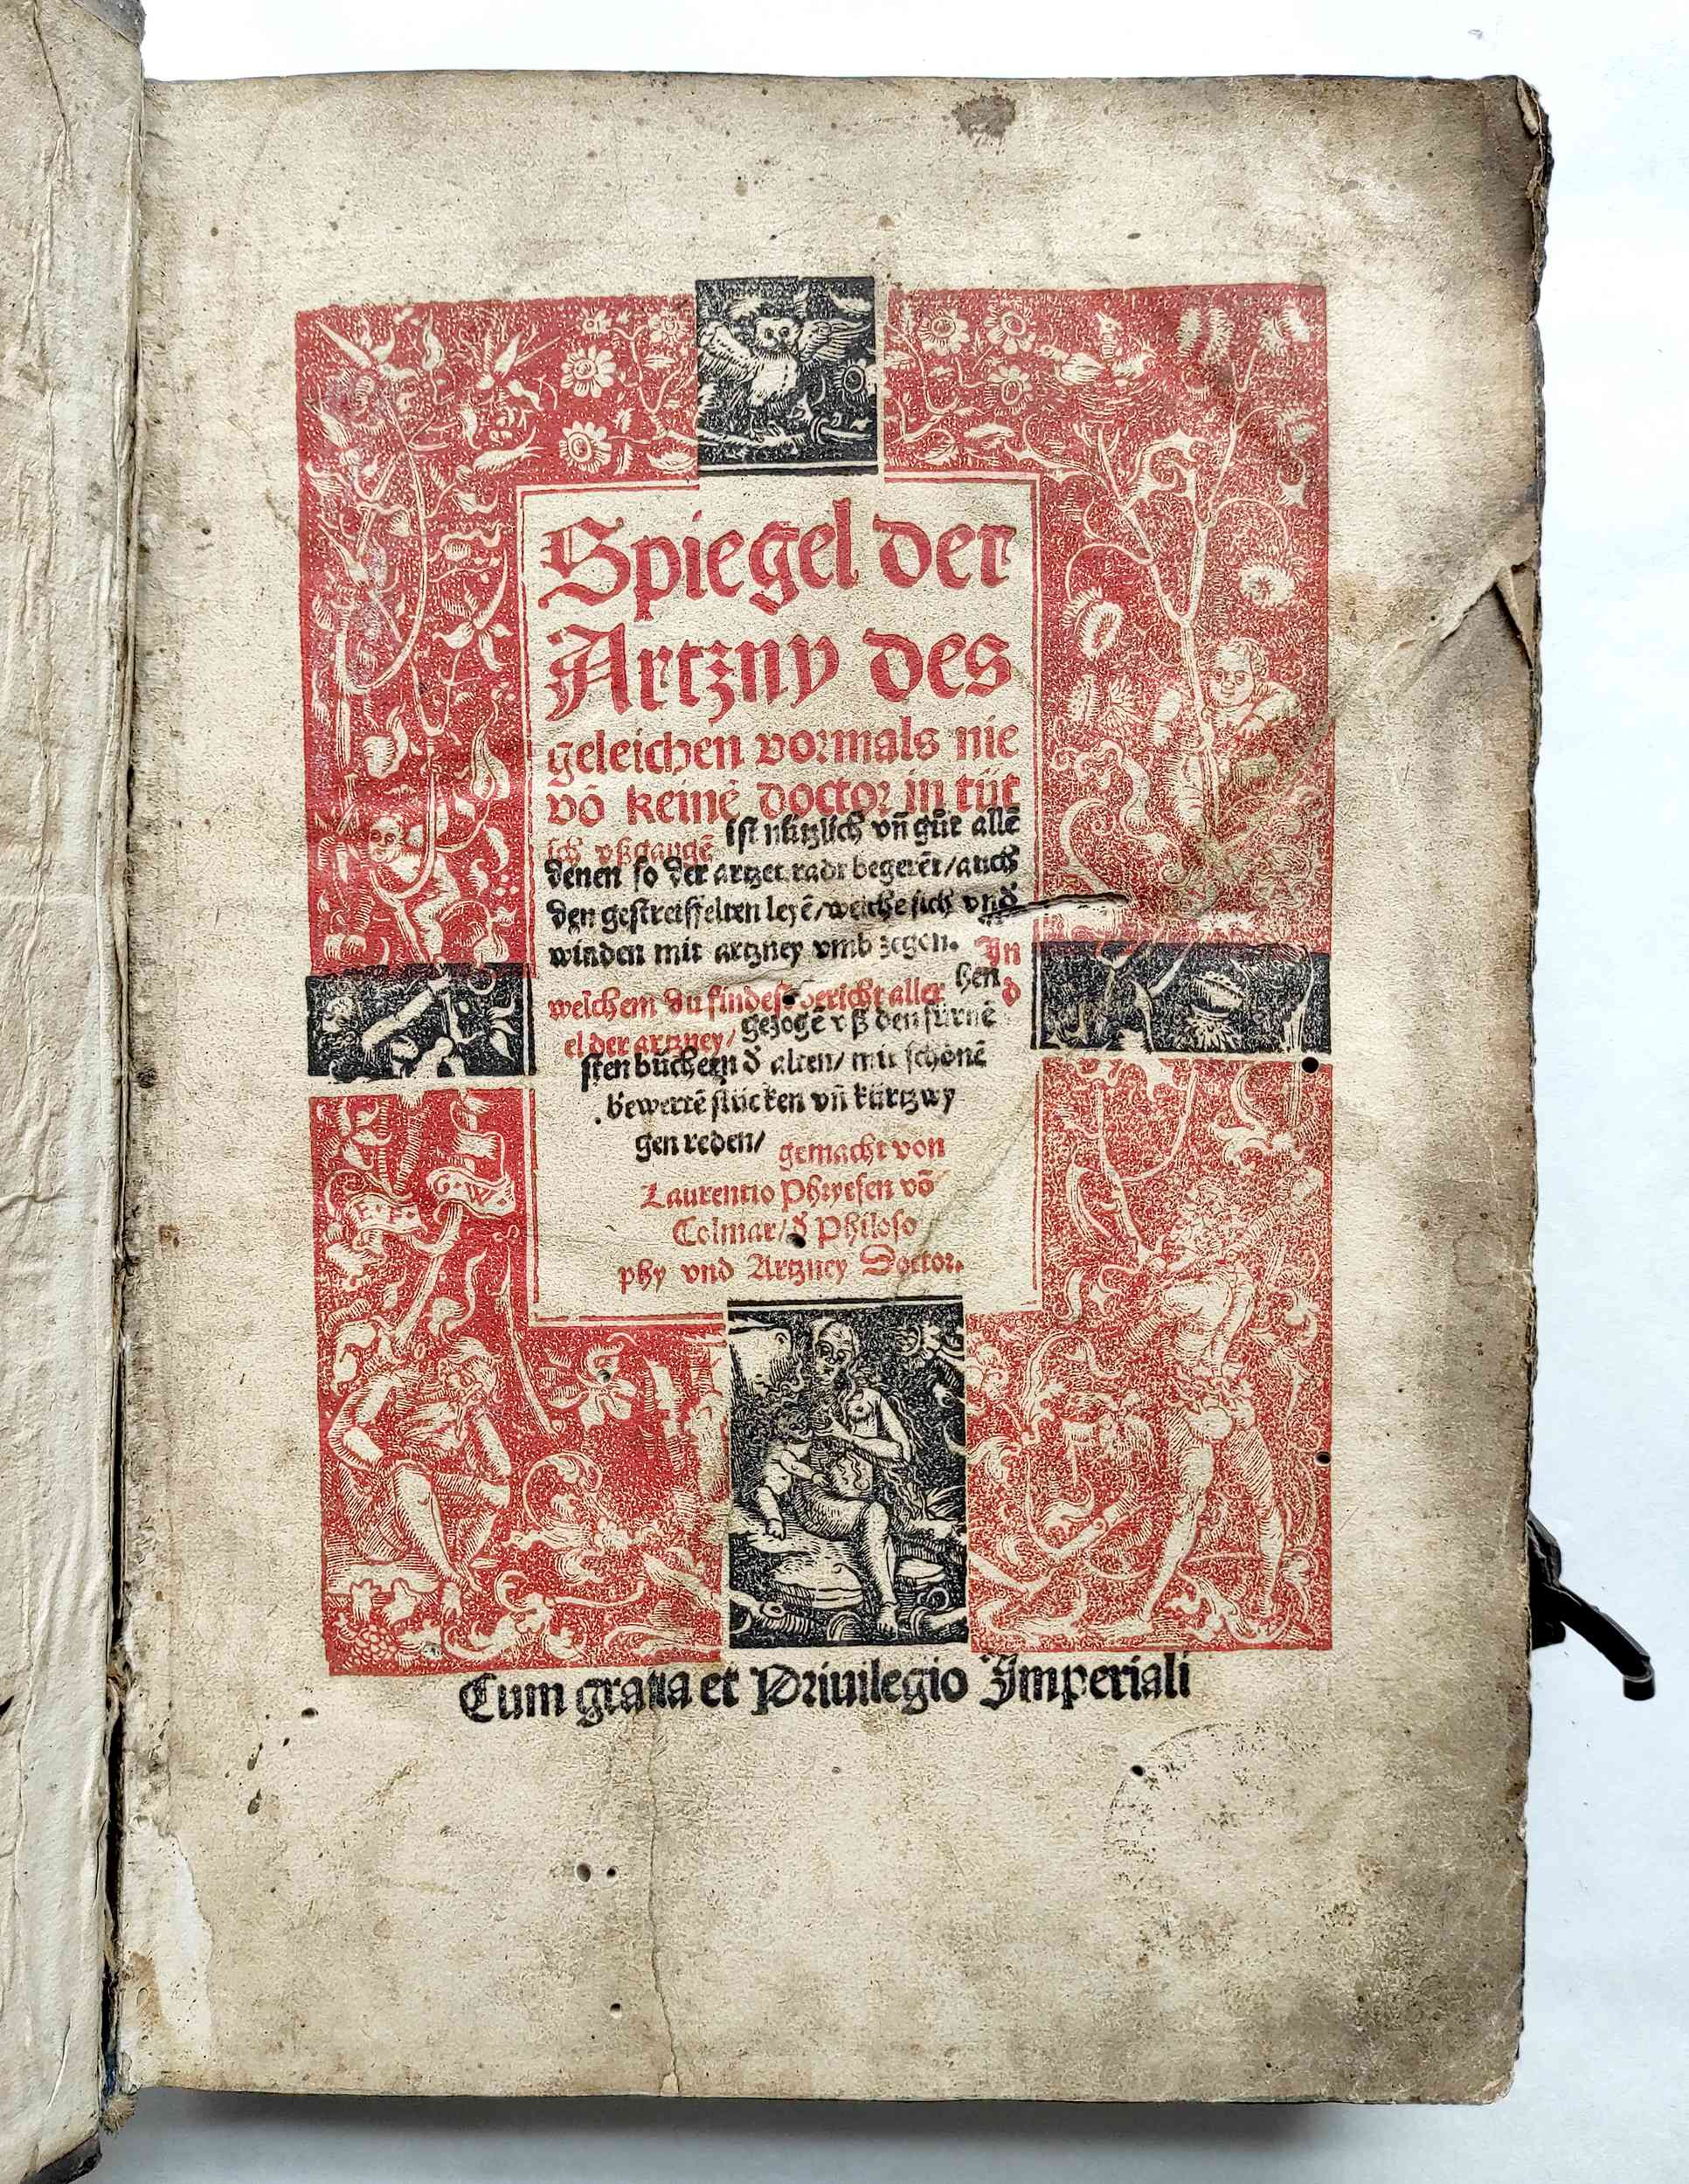 Spiegel der
Artzny des
geleichen vormals nie
vō keinē doctor in tüt
ſch vßgangē iſt nützlich vñ gůt allē
denen ſo der artzet radt begerēt/auch
den geſtreiffelten leyē/welche ſich vnd̄
winden mit artzney vmb zegen. In
welchem du findeſt bericht aller hen d̄
el der artzney/ gezogē vß den fürnē
ſten bůchern d̄ alten/ mit ſchönē
bewertē ſtücken vñ kürtzwy
gen reden/ gemacht von
Laurentio Phryeſen vō
Colmar/d̄ Philoſo
phy vnd Artzney Doctor.
G·W
Cum gratia et Priuilegio Imperiali